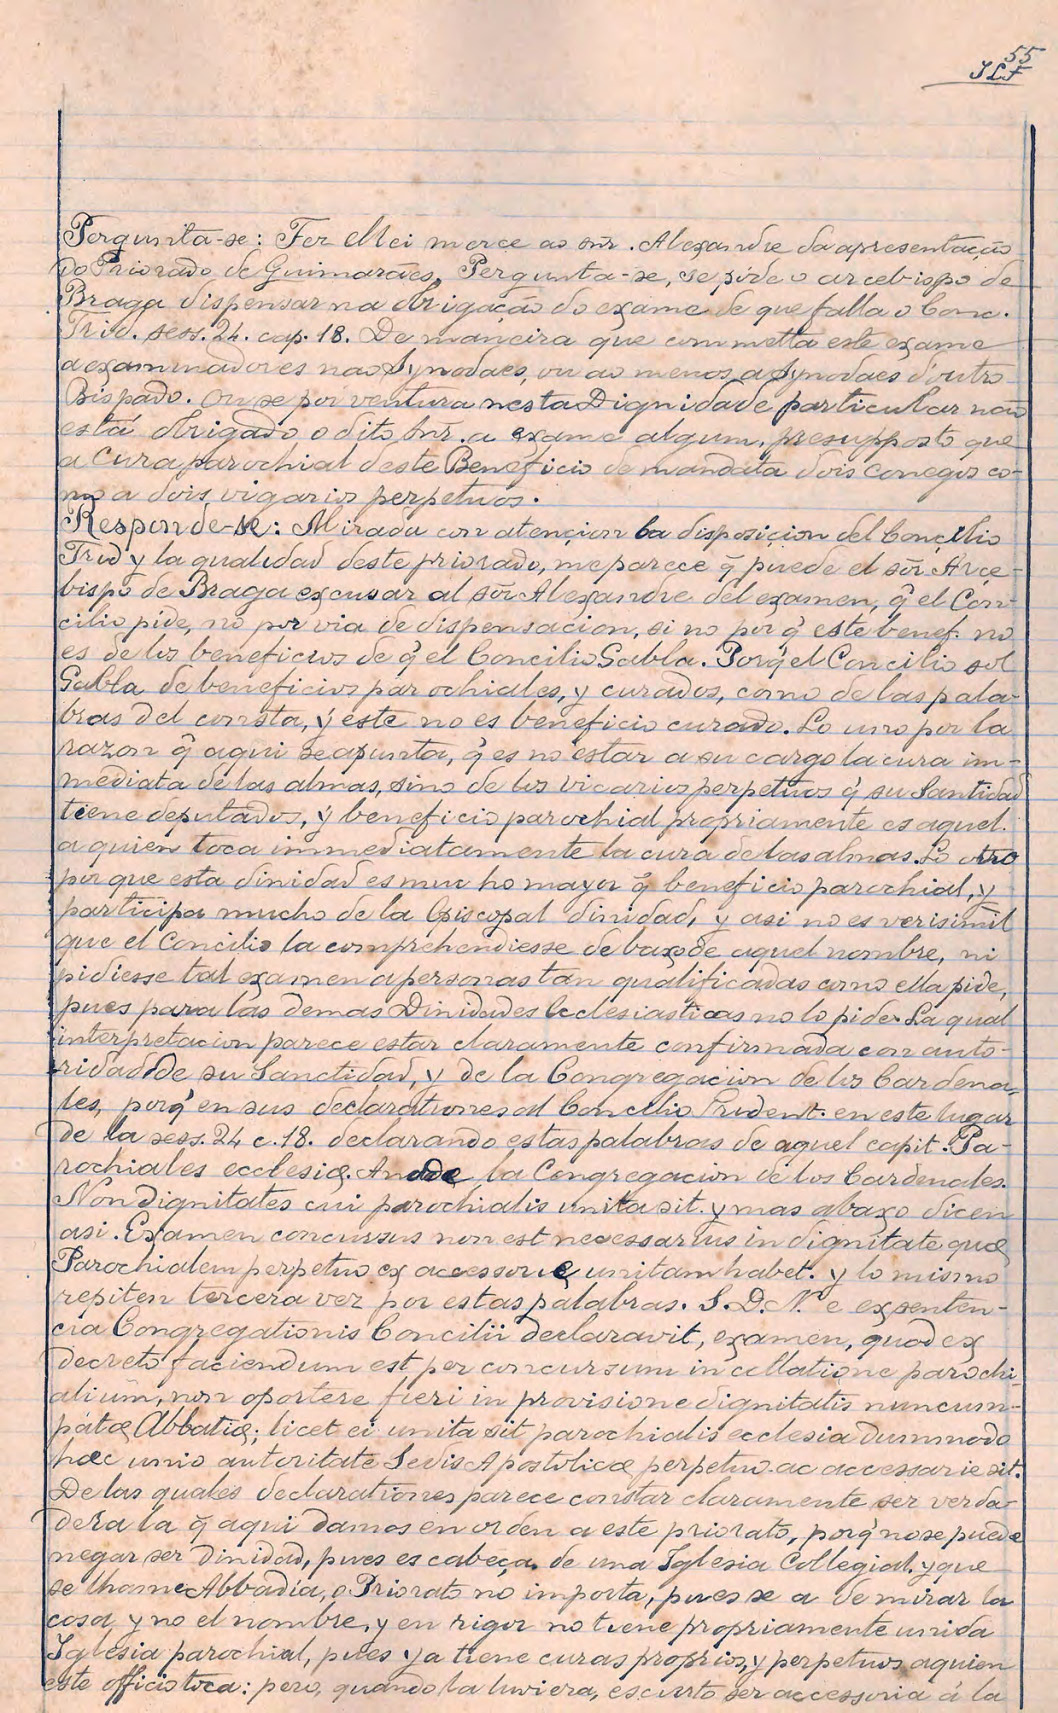 55
JLF
Pergunta-se: Fez ElRei merce ao snr. Alexandre da apresentação
do Priorado de Guimarães, Pergunta-se, se pode o arcebispo de
Braga dispensar na obrigação do exame de que falla o Conc.
Trid. sess. 24. cap. 18. De maneira que commetta este exame
a examinadores nao Synodaes, ou ao menos a Synodaes d'outro
Bispado. Ou se por ventura nesta Dignidade particular não
está obrigado o dito snr. a exame algum, presupposto que
a Cura parochial deste Beneficio de mandata dois conegos co-
mo a dois vigarios perpetuos.
Responde-se: Mirada con atençion la disposiçion del Conçilio
Trid y la qualidad deste priorado, me parece q̃ puede el sõr Arçe-
bispo de Braga excusar al sõr Alexandre del examen, q̃ el Con-
cilio pide, no por via de dispensacion, si no por q̃ este benef. no
es de los beneficios de q̃ el Concilio Gabla. Porq̃ el Concilio sol
Gabla de beneficios parochiales, y curados, como de las pala-
bras del consta, y este no es beneficio curado. Lo uno por la
razon q̃ aqui se apunta, q̃ es no estar a su cargo la cura im-
mediata de las almas, sino de los vicarios perpetuos q̃ su Santidad
tiene deputados, y beneficio parochial propriamente es aquel.
a quien toca immediatamente la cura de las almas. Lo otro
por que esta dinidad es mucho mayor q̃ beneficio parochial, y
participa mucho de la Episcopal dinidad, y asi no es verisimil
que el Concilio la comprehendiesse debaxo de aquel nombre, ni
pidiesse tal examen a personas tan qualificadas como ella pide,
pues para las demas Dinidades Ecclesiasticas no lo pide. La qual
interpretacion parece estar claramente confirmada con auto-
ridad de su Sanctidad, y de la Congregacion de los Cardena-
les, porq̃ en sus declarationes al Concilio Trident. en este lugar
de la sess. 24 c. 18. declarando estas palabras de aquel capit. Pa-
rochiales ecclesiæ. Anade la Congregacion de los Cardenales.
Non dignitates cui parochialis unita sit. y mas abaxo dicen
asi. Examen concursus non est necessarius in dignitate quæ
Parochialem perpetuo ex accessorie unitam habet. y lo mismo
repiten tercera vez por estas palabras. S. D. N. e exsenten-
cia Congregationis Concilii declaravit, examen, quod ex
decreto faciendum est per concursum in collatione parochi-
alium, non oportere fieri in provisione dignitatis nuncum-
patæ Abbatiæ; licet ei unita sit parochialis ecclesia dummodo
hæc unio autoritate Sedis Apostolicæ perpetuo ac accessarie sit.
De las quales declarationes parece constar claramente ser verda-
dera la q̃ aqui damos en orden a este priorato, porq̃ no se puede
negar ser dinidad, pues es cabeça de una Iglesia Collegial, y que
se lhame Abbadia, o Priorato no importa, pues se a de mirar la
cosa y no el nombre, y en rigor no tiene propriamente unida
Iglesia parochial, pues ya tiene curas proprios, y perpetuos a quien
este officio toca: pero, quando la tuviera, es cierto ser accessoria á la